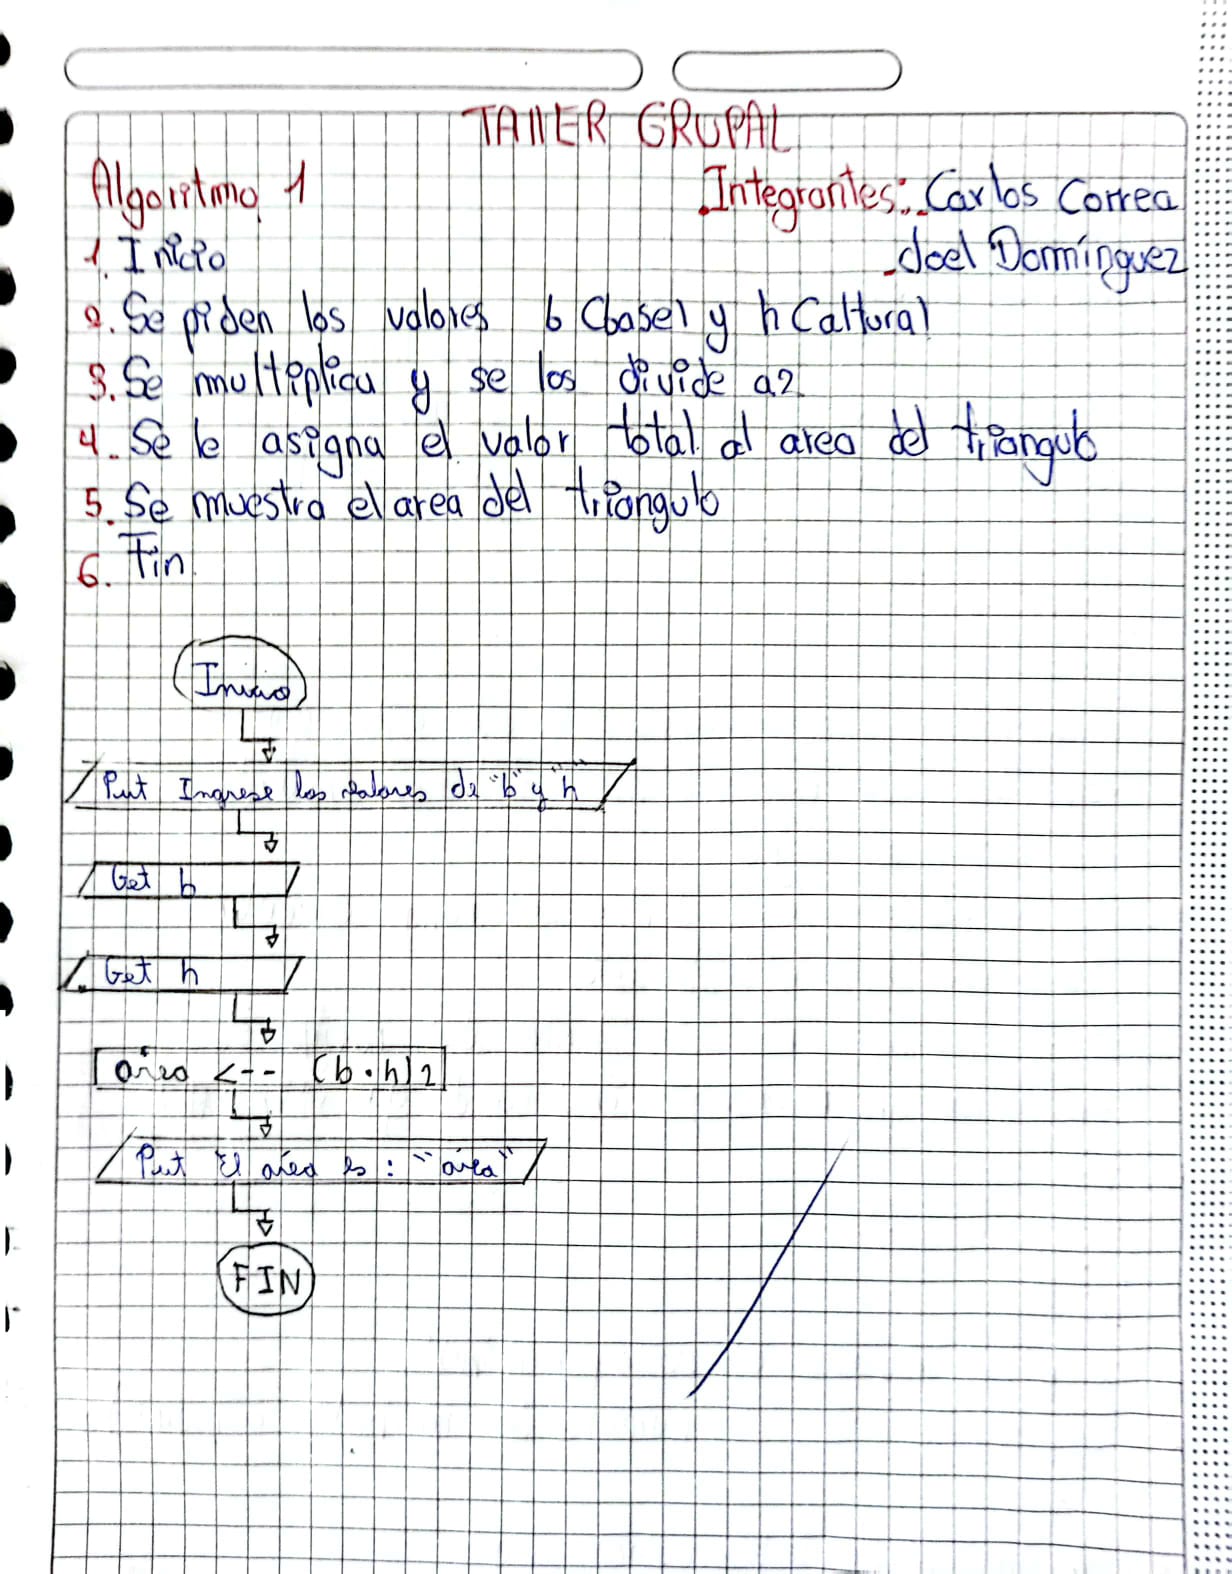 TAllER GRUPAL
Algoritmo 1
Integrantes: Carlos Correa
Joel Domínguez
1. Inicio
2. Se piden los valores b (base) y h (altura)
3. Se multiplica y se los divide a2
4. Se le asigna el valor total al area del triangulo
5. Se muestra el area del triangulo
6. Fin
Inicio
Put Ingrese los valores de "b" y "h"
Get b
Get h
área <-- (b·h)2
Put El área es: "área"
FIN